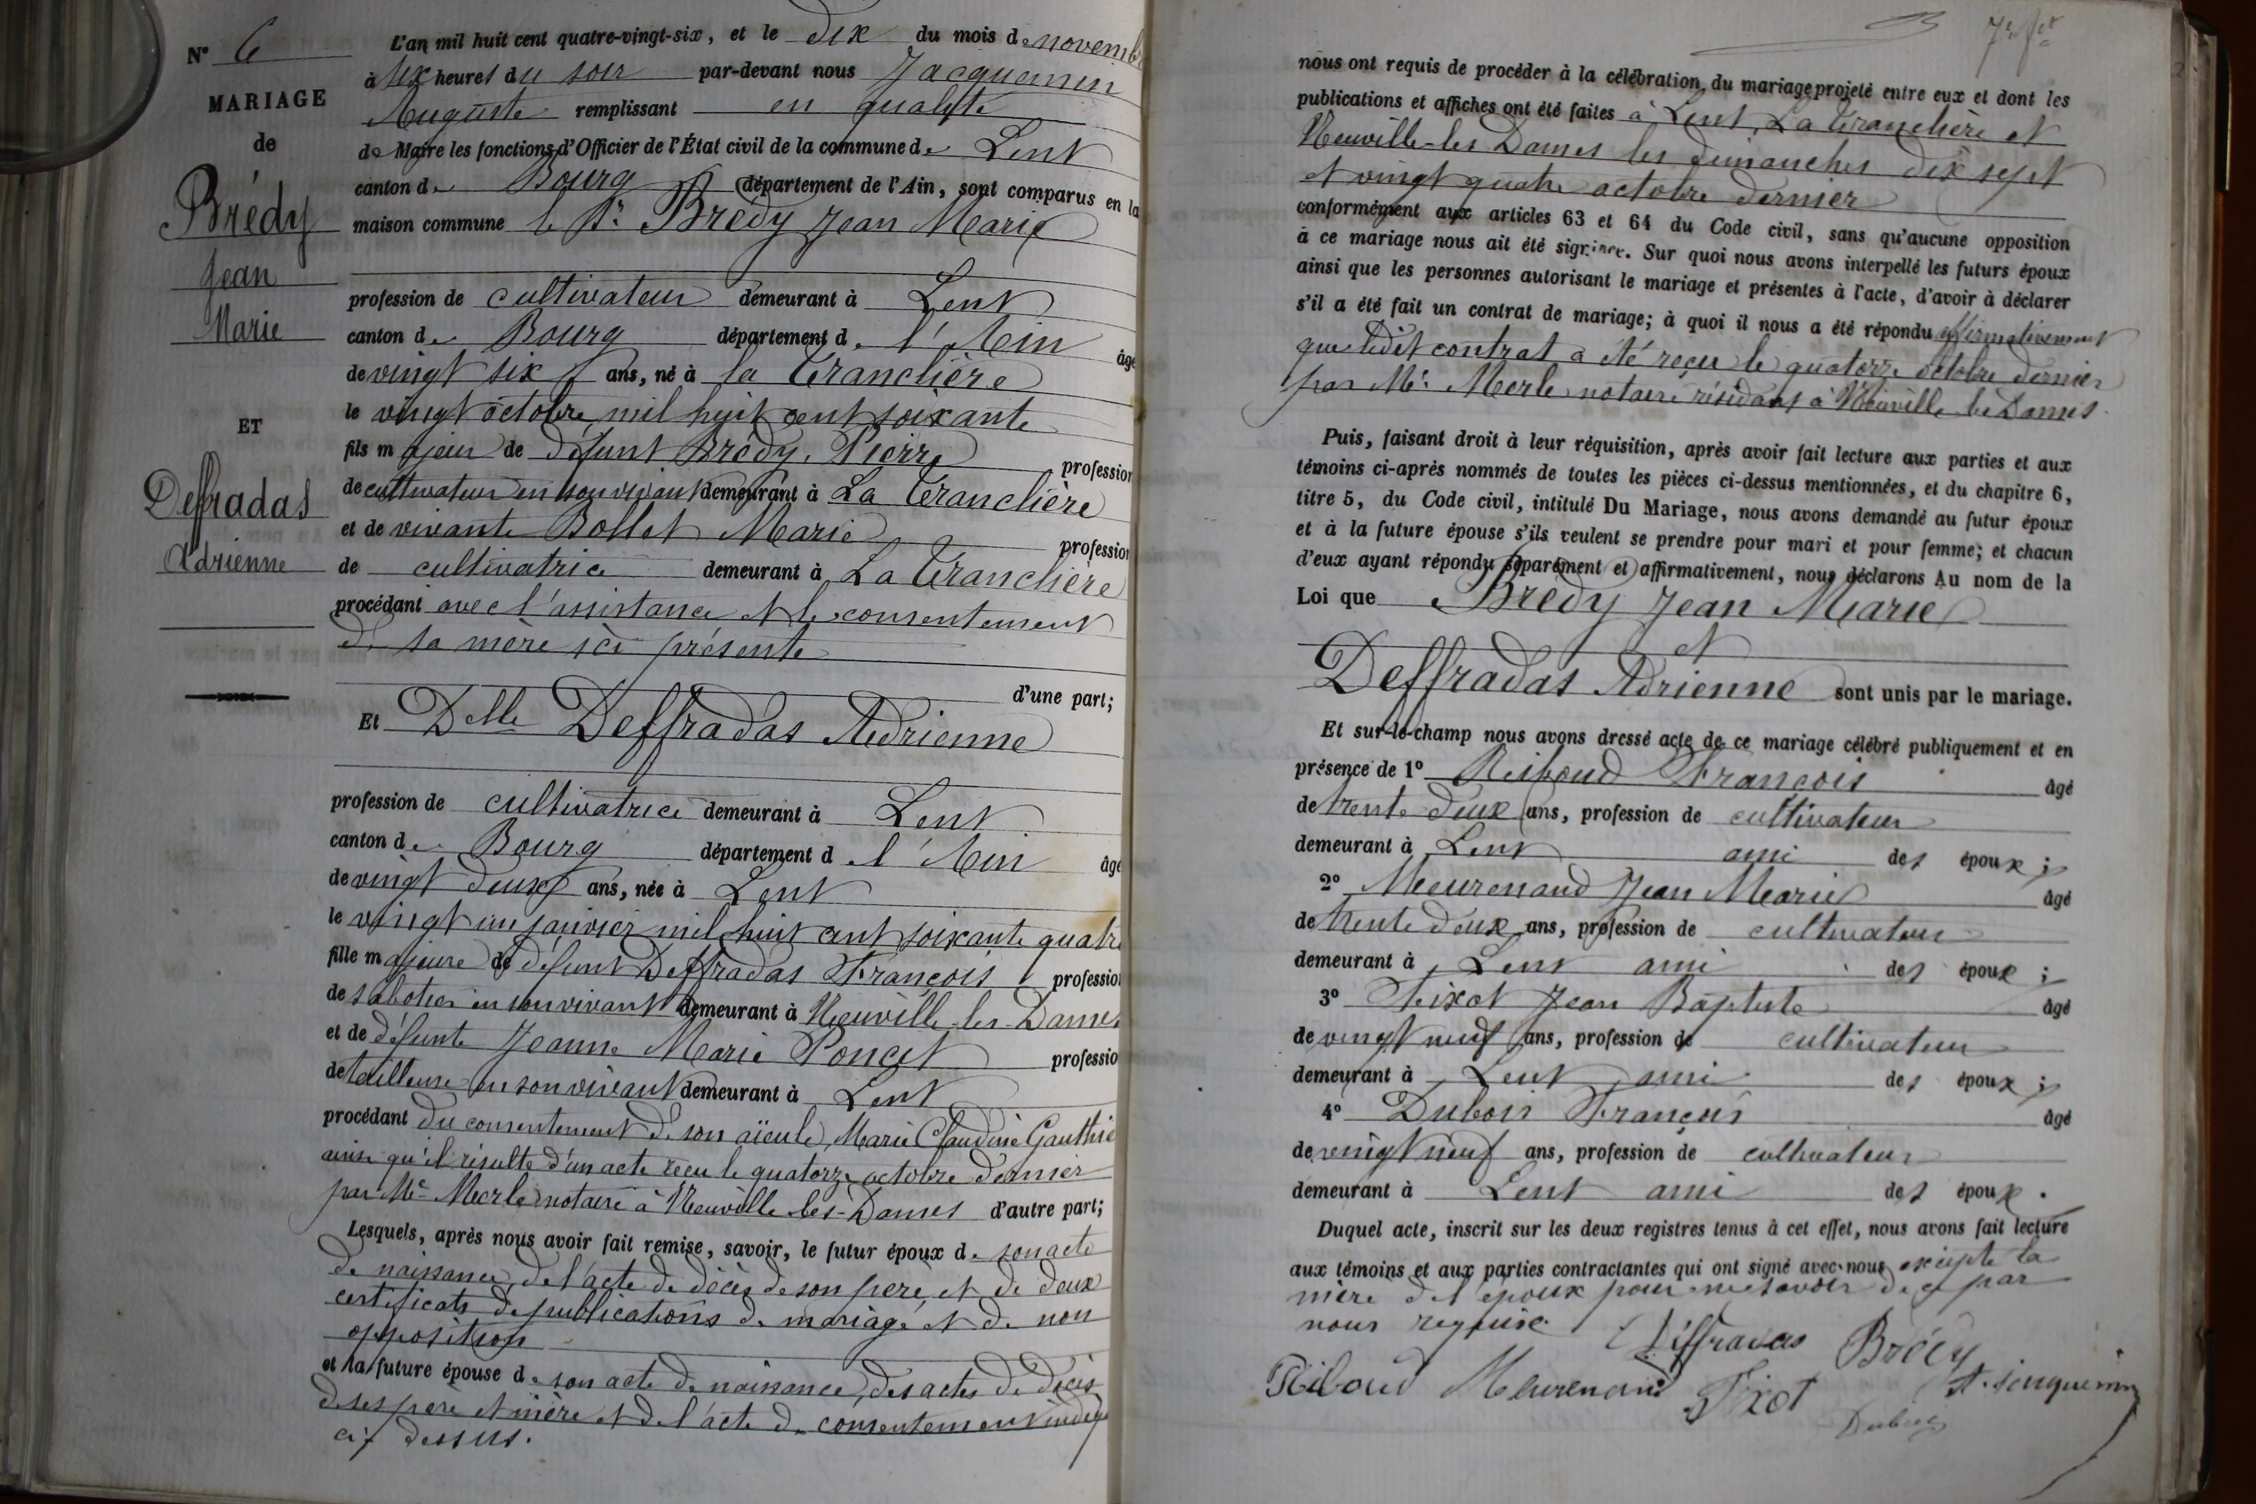 N° 6
MARIAGE
de
Brédy
Jean
Marie
ET
Deffradas
Adrienne
L'an mil huit cent quatre-vingt-six, et le dix du mois de novemb
à six heures du soir par-devant nous Jacquemin
Auguste remplissant en qualité
de Maire les fonctions d'Officier de l'État civil de la commune de Lent
canton de Bourg département de l'Ain, sont comparus en la
maison commune le Sr Brédy Jean Marie
profession de cultivateur demeurant à Lent
canton de Bourg département de l'Ain âgé
de vingt six ans, né à la Tranclière
le vingt octobre mil huit cent soixante
fils majeur de défunt Brédy Pierre profession
de cultivateur en son vivant demeurant à La Tranclière
et de vivante Bollet Marie profession
de cultivatrice demeurant à La Tranclière
procédant avec l'assistance et le consentement
de sa mère ici présente
d'une part;
Et Delle Deffradas Adrienne
profession de cultivatrice demeurant à Lent
canton de Bourg département de l'Ain âgé
de vingt deux ans, née à Lent
le vingt un janvier mil huit cent soixante quatre
fille majeure de défunt Deffradas François profession
de sabotier en son vivant demeurant à Neuville-les-Dames
et de défunte Jeanne Marie Poncet profession
de tailleuse en son vivant demeurant à Lent
procédant du consentement de son aïeule Marie Claudine Gauthie
ainsi qu'il résulte d'un acte reçu le quatorze octobre dernier
par Me Merle notaire à Neuville-les-Dames d'autre part;
Lesquels, après nous avoir fait remise, savoir, le futur époux de son acte
de naissance, de l'acte de décès de son père, et de deux
certificats de publications de mariage et de non
opposition
et la future épouse de son acte de naissance, des actes de décès
de ses père et mère et de l'acte de consentement
ci-dessus.
nous ont requis de procéder à la célébration du mariage projeté entre eux et dont les
publications et affiches ont été faites à Lent, La Tranclière et
Neuville-les-Dames les dimanches dix sept
et vingt quatre octobre dernier
conformément aux articles 63 et 64 du Code civil, sans qu'aucune opposition
à ce mariage nous ait été signifiée. Sur quoi nous avons interpellé les futurs époux
ainsi que les personnes autorisant le mariage et présentes à l'acte, d'avoir à déclarer
s'il a été fait un contrat de mariage; à quoi il nous a été répondu affirmativement
que ledit contrat a été reçu le quatorze octobre dernier
par Me Merle notaire résidant à Neuville les Dames.
Puis, faisant droit à leur réquisition, après avoir fait lecture aux parties et aux
témoins ci-après nommés de toutes les pièces ci-dessus mentionnées, et du chapitre 6,
titre 5, du Code civil, intitulé Du Mariage, nous avons demandé au futur époux
et à la future épouse s'ils veulent se prendre pour mari et pour femme; et chacun
d'eux ayant répondu séparément et affirmativement, nous déclarons Au nom de la
Loi que Brédy Jean Marie
et
Deffradas Adrienne sont unis par le mariage.
Et sur-le-champ nous avons dressé acte de ce mariage célébré publiquement et en
présence de 1° Riboud François âgé
de trente deux ans, profession de cultivateur
demeurant à Lent ami des époux;
2° Meurenand Jean Marie âgé
de trente deux ans, profession de cultivateur
demeurant à Lent ami des époux;
3° Fixot Jean Baptiste âgé
de vingt neuf ans, profession de cultivateur
demeurant à Lent ami des époux;
4° Dubois François âgé
de vingt neuf ans, profession de cultivateur
demeurant à Lent ami des époux.
Duquel acte, inscrit sur les deux registres tenus à cet effet, nous avons fait lecture
aux témoins et aux parties contractantes qui ont signé avec nous excepté la
mère de l'époux pour ne savoir de ce par
nous requise.
Deffradas Brédy
Riboud Meurenand Fixot A. Jacquemin
Dubois